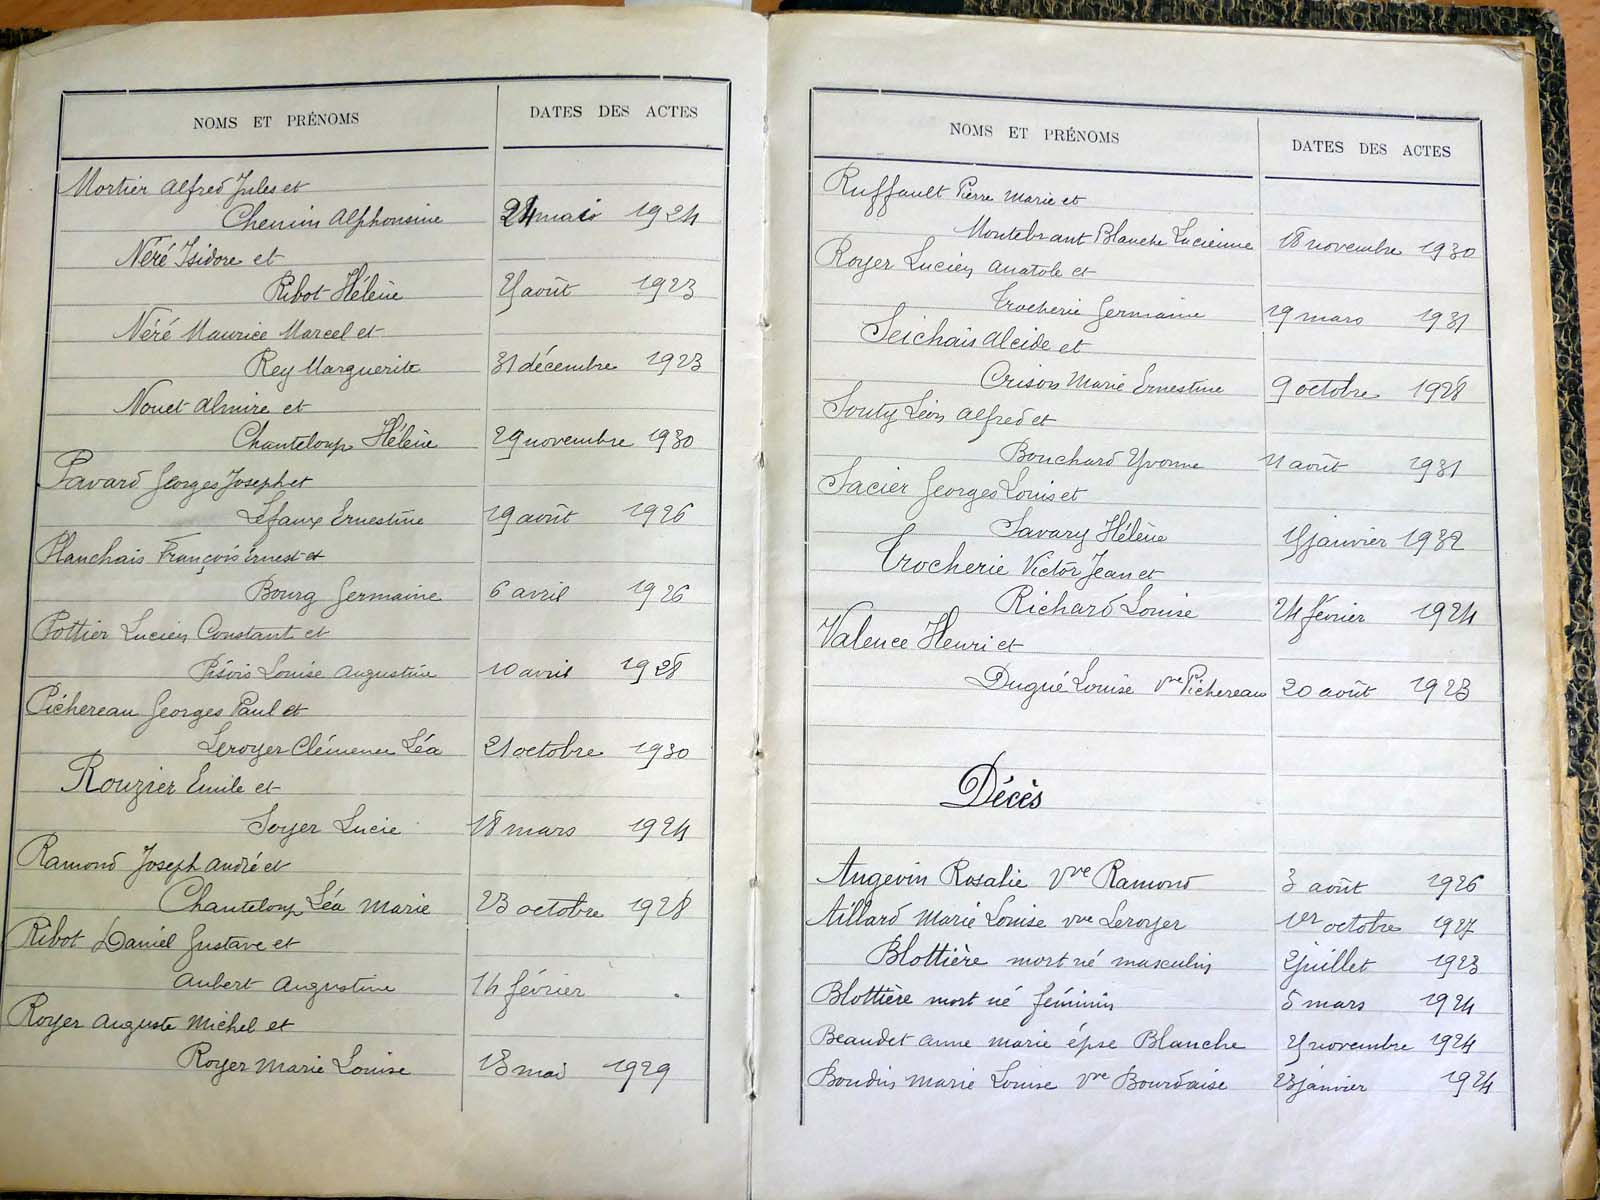 NOMS ET PRÉNOMS
DATES DES ACTES
Mortier Alfred Jules et
Chemin Alphonsine 24 mai 1924
Néré Isidore et
Ribot Hélène août 1923
Néré Maurice Marcel et
Rey Marguerite 31 décembre 1923
Nouet Almire et
Chanteloup Hélène 29 novembre 1930
Pavard Georges Joseph et
Lefaux Ernestine 19 août 1926
Planchais François Ernest et
Bourg Germaine 6 avril 1926
Pottier Lucien Constant et
Louise Augustine 10 avril 1928
Pichereau Georges Paul et
Leroyer Clémence Léa 21 octobre 1930
Rouzier Emile et
Soyer Lucie 18 mars 1924
Ramond Joseph André et
Chanteloup Léa Marie 23 octobre 1928
Ribot Daniel Gustave et
Aubert Augustine 14 février
Royer Auguste Michel et
Royer Marie Louise 13 mai 1929
NOMS ET PRÉNOMS
DATES DES ACTES
Ruffault Pierre Marie et
Montebrant Blanche Lucienne 18 novembre 1930
Royer Lucien Anatole et
Trocherie Germaine 19 mars 1931
Seichais Alcide et
Crison Marie Ernestine 9 octobre 1928
Souty Léon Alfred et
Bouchard Yvonne août 1931
Sacier Georges Louis et
Savary Hélène janvier 1932
Trocherie Victor Jean et
Richard Louise 24 février 1924
Valence Henri et
Dugué Louise vve Pichereau 20 août 1923
Décès
Angevin Rosalie Vve Ramond 3 août 1926
Aillard Marie Louise vve Leroyer 1er octobre 1927
Blottière mort né masculin 2 juillet 1923
Blottière mort né féminin 5 mars 1924
Beaudet Anne Marie épse Blanche novembre 1924
Boudin Marie Louise Vve Bourdaise 23 janvier 1924